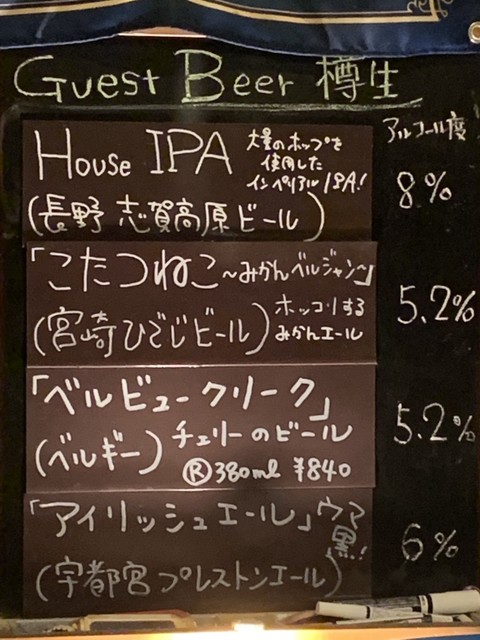 Guest Beer 樽生
アルコール度
House IPA
大量のホップを
使用した
インペリアルIPA!
(長野 志賀高原ビール)
8%
「こたつねこ~みかんベルジャン~」
(宮崎ひでじビール)
ホッコリする
みかんエール
5.2%
「ベルビュークリーク」
(ベルギー)チェリーのビール
Ⓡ380ml ¥840
5.2%
「アイリッシュエール」ウマ
黒!
(宇都宮プレストンエール)
6%